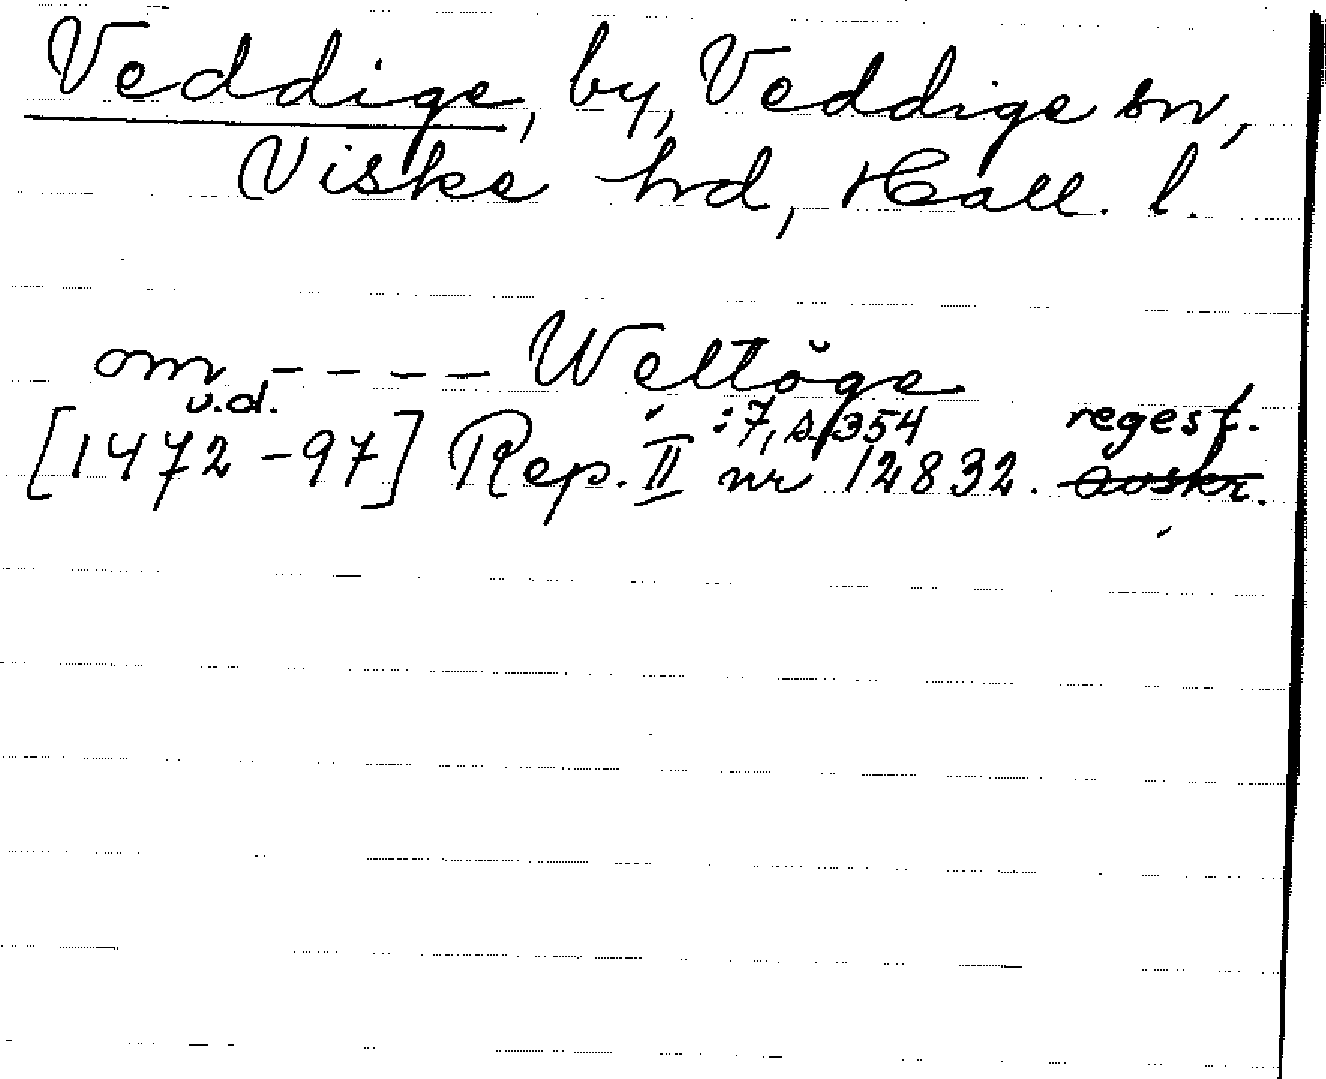 Veddige, by, Veddige sn,
Viske hd, Hall. l.
om - - - - Weltöge
u.d. :7, s. 354 regest.
[1472-97] Rep. II nr 12832. avskr.